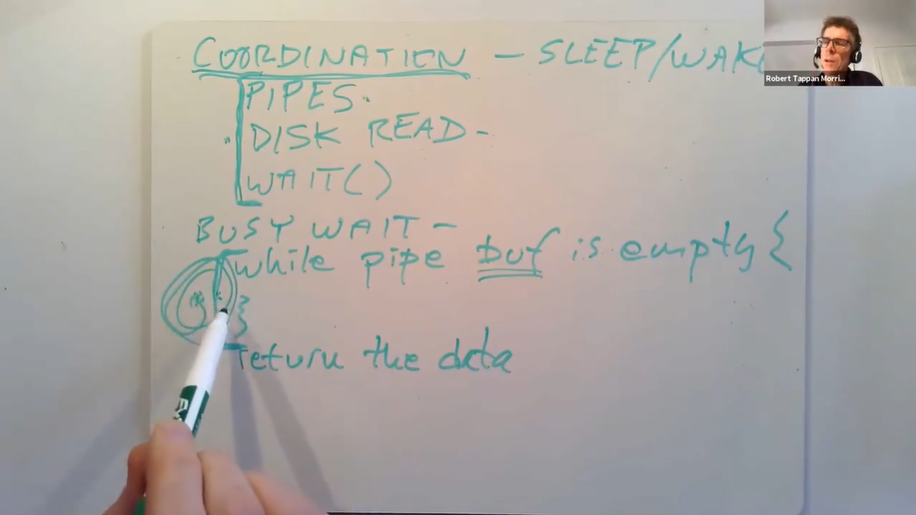 COORDINATION – SLEEP/WAKE
PIPES.
DISK READ –
WAIT()
BUSY WAIT –
while pipe buf is empty {
}
return the data
Robert Tappan Morri...